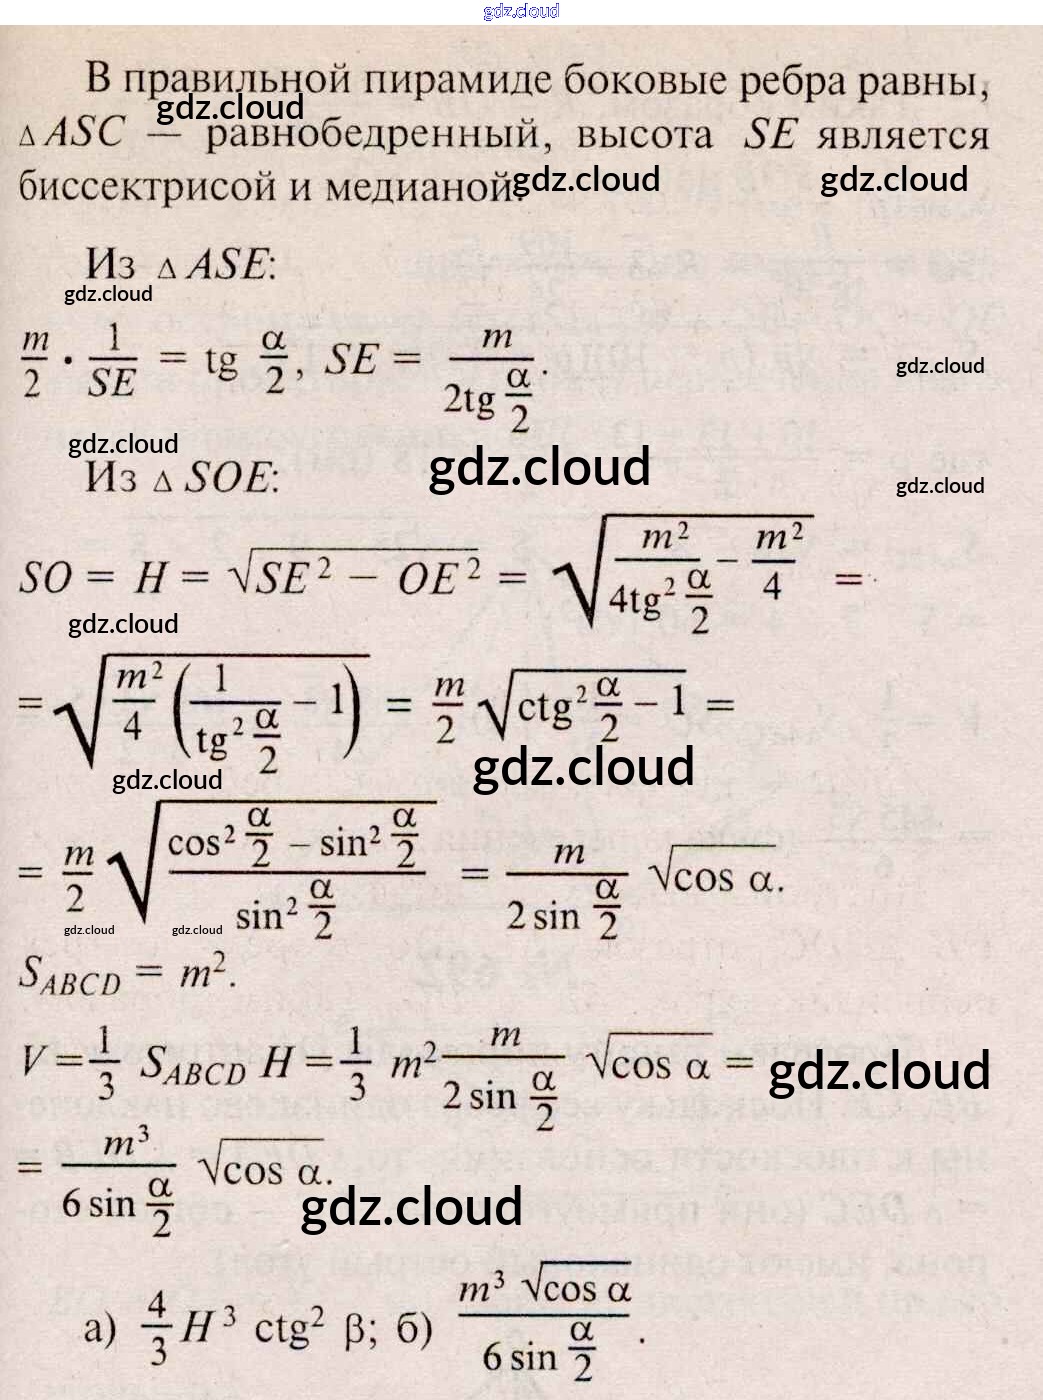 gdz.cloud
В правильной пирамиде боковые ребра равны,
gdz.cloud
△ASC — равнобедренный, высота SE является
биссектрисой и медианой.
gdz.cloud gdz.cloud
Из △ASE:
gdz.cloud
m/2 · 1/SE = tg α/2, SE = m/(2tg α/2).
gdz.cloud
gdz.cloud
Из △SOE:
gdz.cloud
gdz.cloud
SO = H = √(SE² − OE²) = √(m²/(4tg² α/2) − m²/4) =
gdz.cloud
= √(m²/4 (1/(tg² α/2) − 1)) = m/2 √(ctg² α/2 − 1) =
gdz.cloud gdz.cloud
= m/2 √((cos² α/2 − sin² α/2)/(sin² α/2)) = m/(2 sin α/2) √cos α.
gdz.cloud gdz.cloud
S_ABCD = m².
V = 1/3 S_ABCD H = 1/3 m² m/(2 sin α/2) √cos α =
gdz.cloud
= m³/(6 sin α/2) √cos α.
gdz.cloud
а) 4/3 H³ ctg² β; б) (m³ √cos α)/(6 sin α/2).